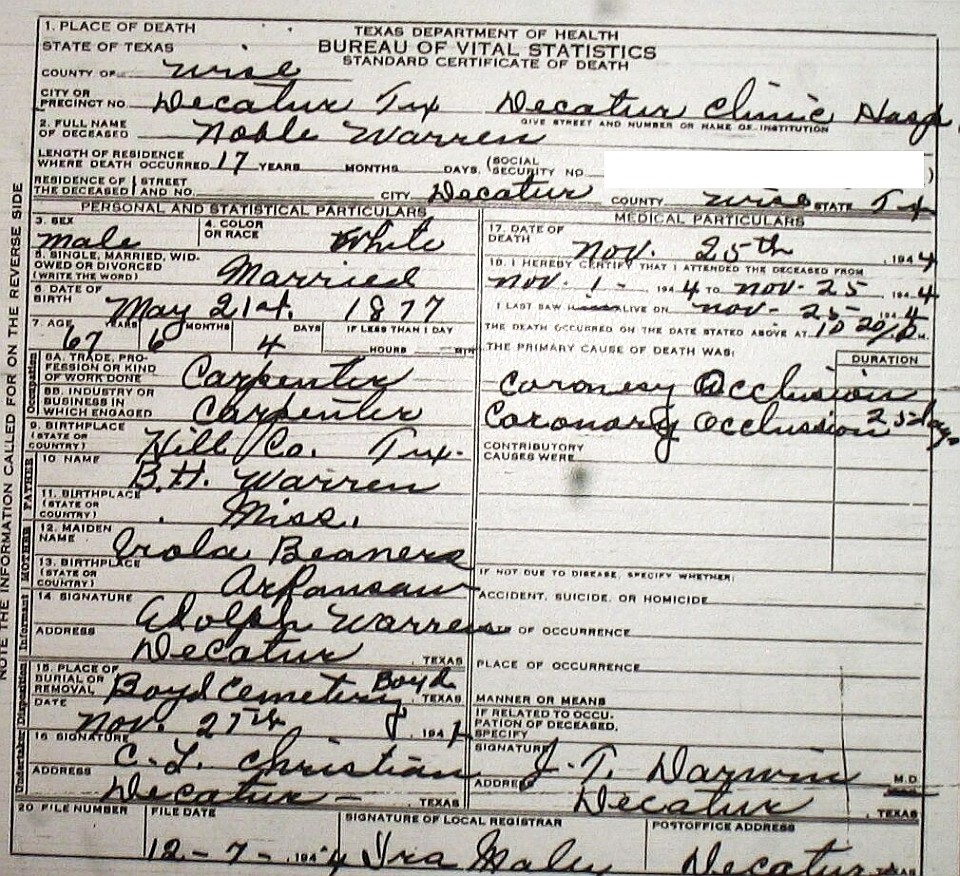 1. PLACE OF DEATH
STATE OF TEXAS
TEXAS DEPARTMENT OF HEALTH
BUREAU OF VITAL STATISTICS
STANDARD CERTIFICATE OF DEATH
COUNTY OF Wise
CITY OR PRECINCT NO. Decatur Tex Decatur Clinic Hosp.
GIVE STREET AND NUMBER OR NAME OF INSTITUTION
2. FULL NAME OF DECEASED Noble Warren
LENGTH OF RESIDENCE WHERE DEATH OCCURRED 17 YEARS MONTHS DAYS. (SOCIAL SECURITY NO. )
RESIDENCE OF THE DECEASED STREET AND NO. CITY Decatur COUNTY Wise STATE Tex
PERSONAL AND STATISTICAL PARTICULARS
3. SEX Male
4. COLOR OR RACE White
5. SINGLE, MARRIED, WIDOWED OR DIVORCED (WRITE THE WORD) Married
6. DATE OF BIRTH May 21st. 1877
7. AGE YEARS MONTHS DAYS IF LESS THAN 1 DAY
67 6 4 HOURS MIN.
Occupation
8A. TRADE, PROFESSION OR KIND OF WORK DONE Carpenter
8B. INDUSTRY OR BUSINESS IN WHICH ENGAGED Carpenter
9. BIRTHPLACE (STATE OR COUNTRY) Hill Co. Tex.
FATHER
10 NAME B.H. Warren
11. BIRTHPLACE (STATE OR COUNTRY) Miss.
MOTHER
12. MAIDEN NAME
13. BIRTHPLACE (STATE OR COUNTRY) Arkansaw
Informant
14 SIGNATURE Adolph Warren
ADDRESS Decatur , TEXAS
Disposition
15. PLACE OF BURIAL OR REMOVAL Boyd Cemetery Boyd , TEXAS
DATE Nov. 27th , 194
Undertaker
16 SIGNATURE C. L. Christian
ADDRESS Decatur - , TEXAS
MEDICAL PARTICULARS
17. DATE OF DEATH Nov. 25th , 1944
18. I HEREBY CERTIFY THAT I ATTENDED THE DECEASED FROM
Nov. 1 - 1944 TO Nov. 25 , 1944
I LAST SAW H ALIVE ON Nov- 25- 1944
THE DEATH OCCURRED ON THE DATE STATED ABOVE AT 10 20 M.
THE PRIMARY CAUSE OF DEATH WAS:
DURATION
Coronesy Occlusion
Coronary Occlussion 25 days
CONTRIBUTORY CAUSES WERE
IF NOT DUE TO DISEASE, SPECIFY WHETHER:
ACCIDENT, SUICIDE, OR HOMICIDE
OF OCCURRENCE
PLACE OF OCCURRENCE
MANNER OR MEANS
IF RELATED TO OCCUPATION OF DECEASED, SPECIFY
SIGNATURE J. T. Darwin M.D.
ADDRESS Decatur , TEXAS
20 FILE NUMBER
FILE DATE
12-7-, 1944
SIGNATURE OF LOCAL REGISTRAR
Ira Maley
POSTOFFICE ADDRESS
Decatur, TEXAS
NOTE THE INFORMATION CALLED FOR ON THE REVERSE SIDE